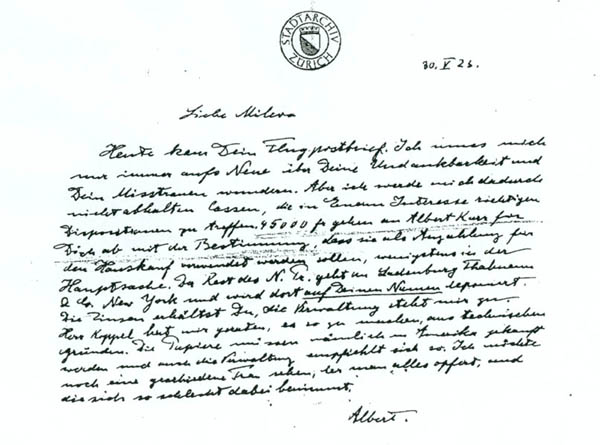 STADTARCHIV
ZÜRICH
30. V 23.
Liebe Mileva
Heute kam Dein Flugpostbrief. Ich muss mich
nur immer aufs Neue über Deine Undankbarkeit und
Dein Misstrauen wundern. Aber ich werde mich dadurch
nicht abhalten lassen, die in Eurem Interesse richtigen
Dispositionen zu treffen. 45000 fr gehen an Albert Karr for
Dich ab mit der Bestimmung, dass sie als Anzahlung für
den Hauskauf verwendet werden sollen, wenigstens in der
Hauptsache. Der Rest des N. Pr. geht an Ladenburg Thalmann
& Co. New York und wird dort auf Deinen Namen deponiert.
Die Zinsen erhältst Du, die Verwaltung steht mir zu.
Herr Koppel hat mir geraten, es so zu machen, aus technischen
gründen. Die Papiere müssen nämlich in Amerika gekauft
werden und auch die Verwaltung empfiehlt sich so. Ich möchte
noch eine geschiedene Frau sehen, der man alles opfert, und
die sich so schlecht dabei benimmt.
Albert.